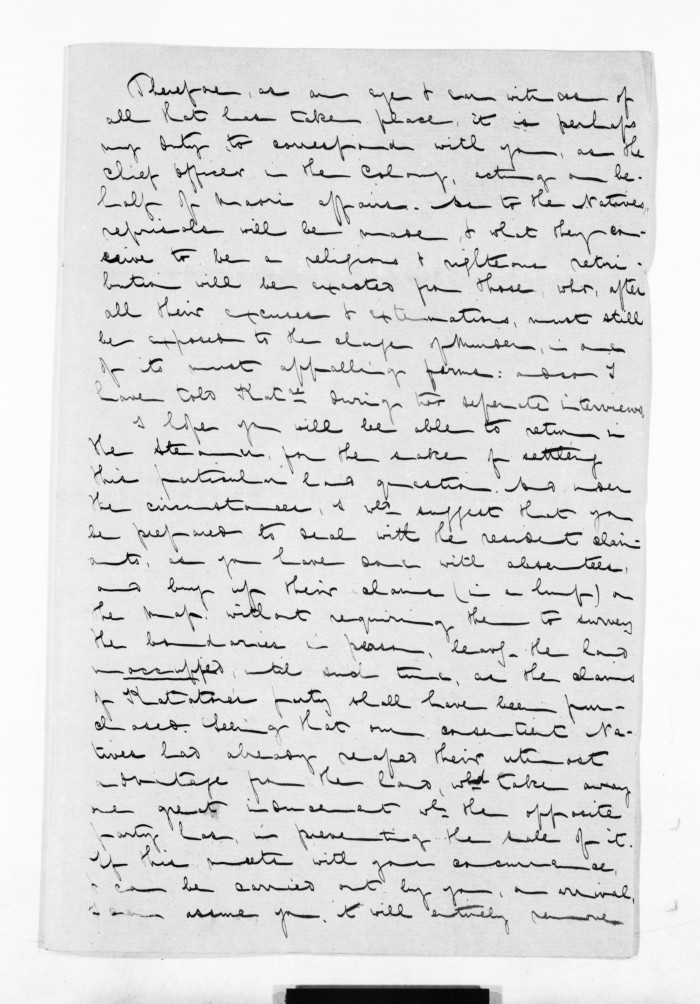 Therefore, as an eye & ear witness of
all that has take place, it is perhaps
my duty to correspond with you, as the
chief officer in the Colony, acting on be-
half of Maori affairs. As to the Natives,
reprisals will be made, & what they con-
ceive to be a religious & righteous retri-
bution will be exacted from those, who, after
all their excuses & extenuations, must still
be exposed to the charge of Murder, in one
of its most appalling forms: and so I
have told Kat.re during two seperate interviews.
I hope you will be able to return in
the Steamer, for the sake of settling
this particular land question. And under
the circumstances, I wld suggest that you
be prepared to deal with the resident claim-
ants, as you have done with absentees,
and buy up their claims (in a lump) on
the Map: without requiring them to survey
the boundaries in person, leavg. the land
unoccupied, until such time, as the claims
of Katatore's party shall have been pur-
chased. Seeing that our consentient Na-
tives had already reaped their utmost
advantage from the land, wld take away
one great inducement wh. the opposite
party has, in preventing the sale of it.
If this meets with your concurrence,
& can be carried out by you, on arrival,
I can assure you, it will entirely remove